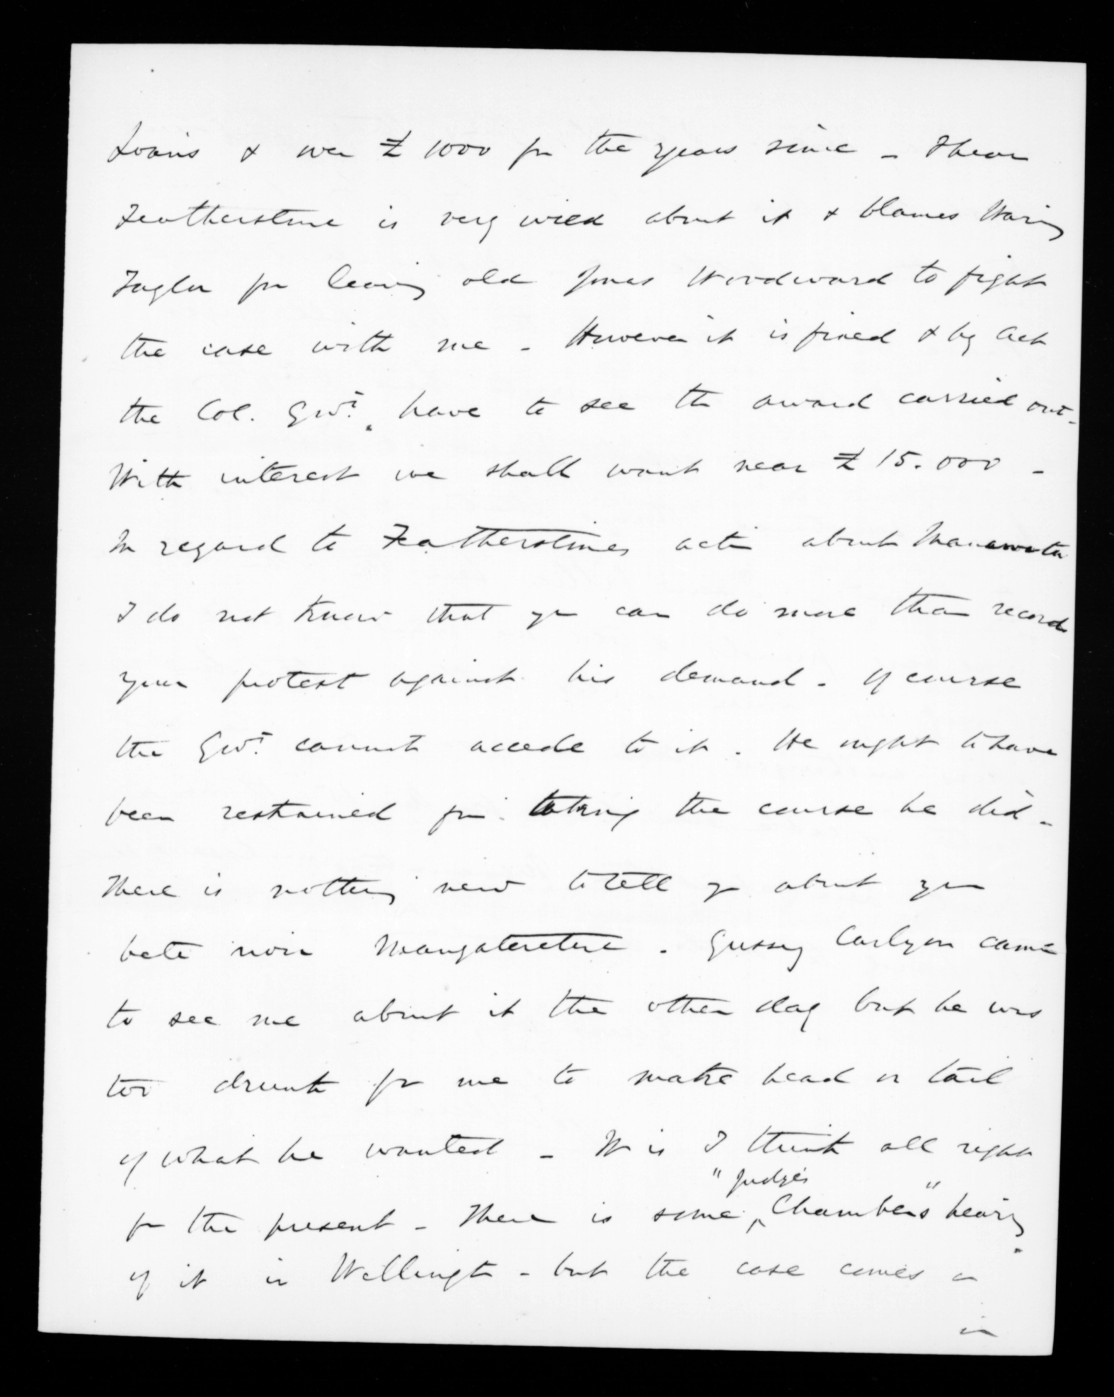 Loans & over £1000 for the years since - I hear
Featherstone is very wild about it & blames Waring
Taylor for leaving old Jonas Woodward to fight
the case with me - However it is fixed & by Act
the Col. Govt. have to see the award carried out -
With interest we shall want near £15.000 -
In regard to Featherstones acti about Manawatu
I do not know that yr can do more than record
your protest against his demand - Of course
the Govt. cannot accede to it. He ought to have
been restrained fm. taking the course he did -
There is nothing new to tell yr about yr
bete noir Mangateretere. Gussy Carlyon came
to see me about it the other day but he was
too drunk for me to make head or tail
of what he wanted - It is I think all right
"Judge's
for the present - There is some Chambers" hearing
of it in Wellington - but the case comes on
in